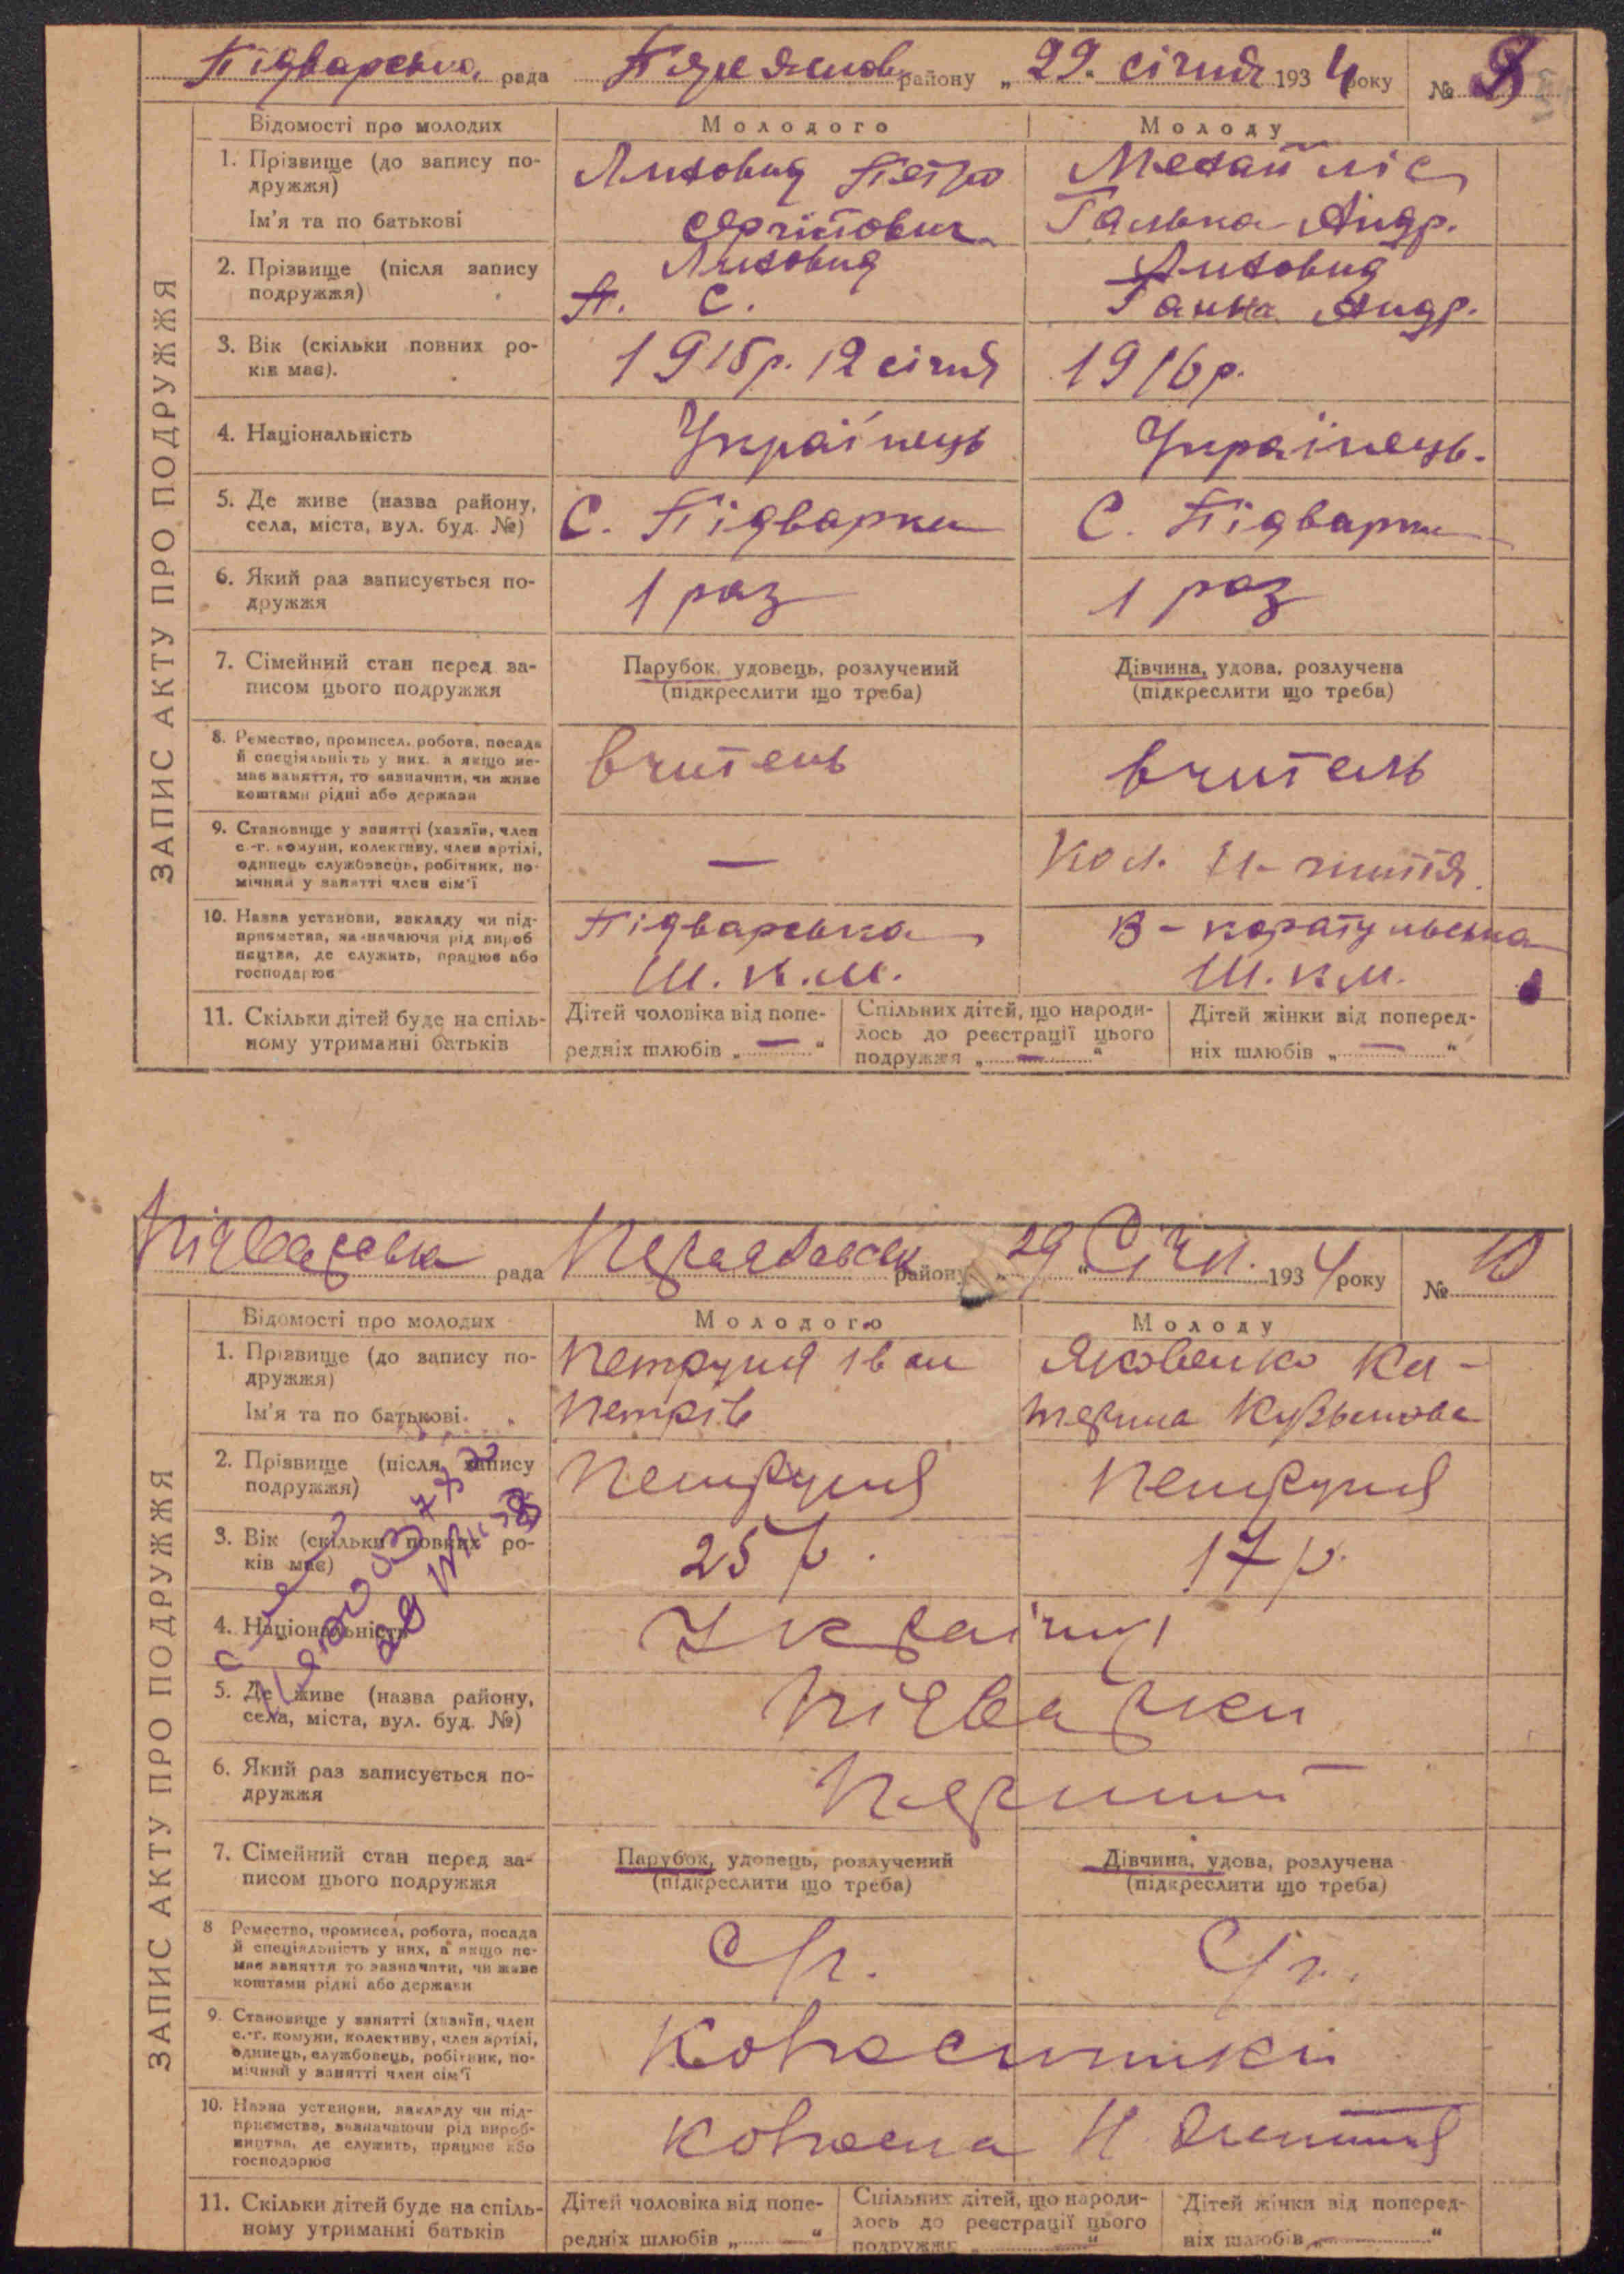 Підварська рада Переяславс району „ 29 " січня 1934 року № 9
ЗАПИС АКТУ ПРО ПОДРУЖЖЯ
Відомості про молодих Молодого Молоду
1. Прізвище (до запису по-
дружжя)
Ім'я та по батькові
Лиховид Петро
Сергійович
Ганька Андр.
2. Прізвище (після запису
подружжя)
Лиховид
П. С.
Лиховид
Ганна Андр.
3. Вік (скільки повних ро-
ків має).
1915р. 12 січня
1916р.
4. Національність
Українець
Українець.
5. Де живе (назва району,
села, міста, вул. буд. №)
С. Підварки
С. Підварки
6. Який раз записується по-
дружжя
1 раз
1 раз
7. Сімейний стан перед за-
писом цього подружжя
Парубок, удовець, розлучений
(підкреслити що треба)
Дівчина, удова, розлучена
(підкреслити що треба)
8. Ремество, промисел, робота, посада
й спеціяльність у них, а якщо не-
має заняття, то зазначити, чи живе
коштами рідні або держави
вчитель
вчитель
9. Становище у занятті (хазяїн, член
с.-г. комуни, колективу, член артілі,
одинець службовець, робітник, по-
мічний у занятті член сім'ї
—
Кол. Н-життя.
10. Назва установи, закладу чи під-
приємства, зазначаючи рід вироб
ництва, де служить, працює або
господарює
Підварська
Ш.К.М.
В-каратульська
Ш.К.М.
11. Скільки дітей буде на спіль-
ному утриманні батьків
Дітей чоловіка від попе-
редніх шлюбів „ — "
Спільних дітей, що народи-
лось до реєстрації цього
подружжя „ — "
Дітей жінки від поперед-
ніх шлюбів „ — "
Підварська рада Переяславськ району „ 29 " Січн. 1934 року № 10
ЗАПИС АКТУ ПРО ПОДРУЖЖЯ
Відомості про молодих Молодого Молоду
1. Прізвище (до запису по-
дружжя)
Ім'я та по батькові
Петруня Іван
Петрів
Яковенко Ка-
терина Кузьмова
2. Прізвище (після запису
подружжя)
Петруня
Петруня
3. Вік (скільки повних ро-
ків має)
25 р.
17 р.
4. Національність
Українці
5. Де живе (назва району,
села, міста, вул. буд. №)
Підварки
6. Який раз записується по-
дружжя
Перший
7. Сімейний стан перед за-
писом цього подружжя
Парубок, удовець, розлучений
(підкреслити що треба)
Дівчина, удова, розлучена
(підкреслити що треба)
8 Ремество, промисел, робота, посада
й спеціяльність у них, а якщо не-
має заняття то зазначити, чи живе
коштами рідні або держави
С/г.
С/г.
9. Становище у занятті (хазяїн, член
с.-г. комуни, колективу, член артілі,
одинець, службовець, робітник, по-
мічний у занятті член сім'ї
Колгоспники
10. Назва установи, закладу чи під-
приємства, зазначаючи рід вироб-
ництва, де служить, працює або
господарює
Колгосп Н. Життя
11. Скільки дітей буде на спіль-
ному утриманні батьків
Дітей чоловіка від попе-
редніх шлюбів „ — "
Спільних дітей, що народи-
лось до реєстрації цього
подружжя „ — "
Дітей жінки від поперед-
ніх шлюбів „ "